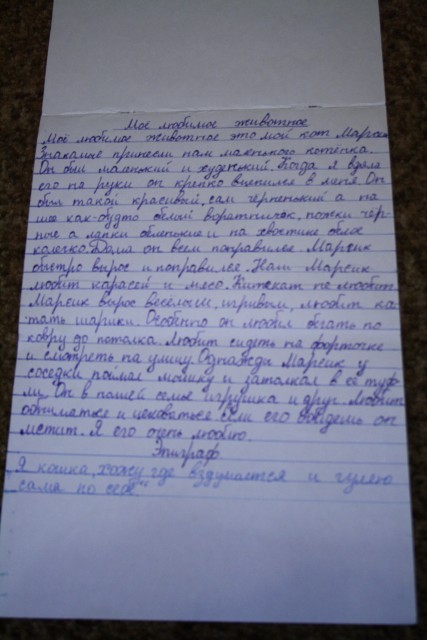 Моё любимое животное
Моё любимое животное это мой кот Марсик
Знакомые принесли нам маленького котёнка.
Он был маленький и худенький. Когда я взяла
его на руки он крепко вцепился в меня. Он
был такой красивый, сам чёрненький а на
шее как-будто белый воротничок, ножки чёр-
ные а лапки беленькие и на хвостике белое
колечко. Дома он всем понравился. Марсик
быстро вырос и поправился. Наш Марсик
любит карасей и мясо. Китекат не любит.
Марсик вырос весёлым, игривым, любит ка-
тать шарики. Особенно он любил бегать по
ковру до потолка. Любит сидеть на форточке
и смотреть на улицу. Однажды Марсик у
соседки поймал мышку и затолкал в её туф-
ли. Он в нашей семье игрушка и друг. Любит
обниматься и целоваться если его обидешь он
мстит. Я его очень люблю.
Эпиграф
„Я кошка, хожу где вздумается и гуляю
сама по себе"